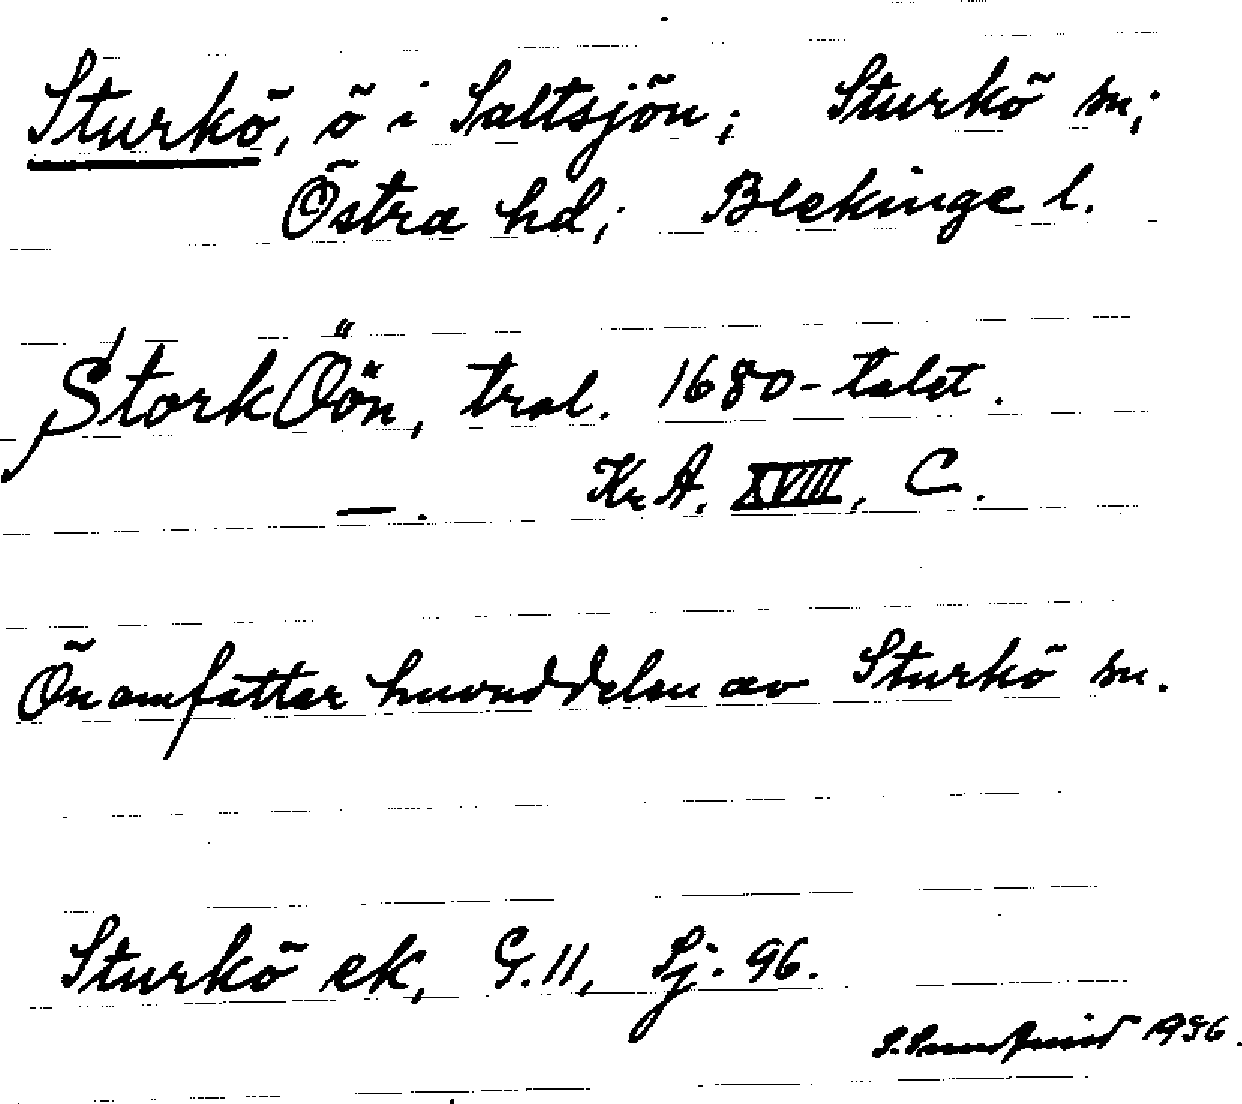 Sturkö, ö i Saltsjön; Sturkö sn;
Östra hd; Blekinge l.
StorkÖön, trol. 1680-talet.
—. Kr A. XVIII, C.
Ön omfattar huvuddelen av Sturkö sn.
Sturkö ek, G. 11, Sj. 96.
1936.